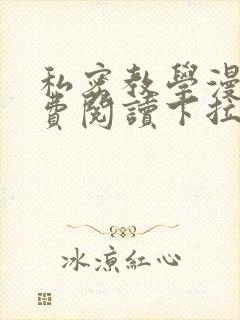 私密教學漫
費閱讀下拉
冰涼紅心